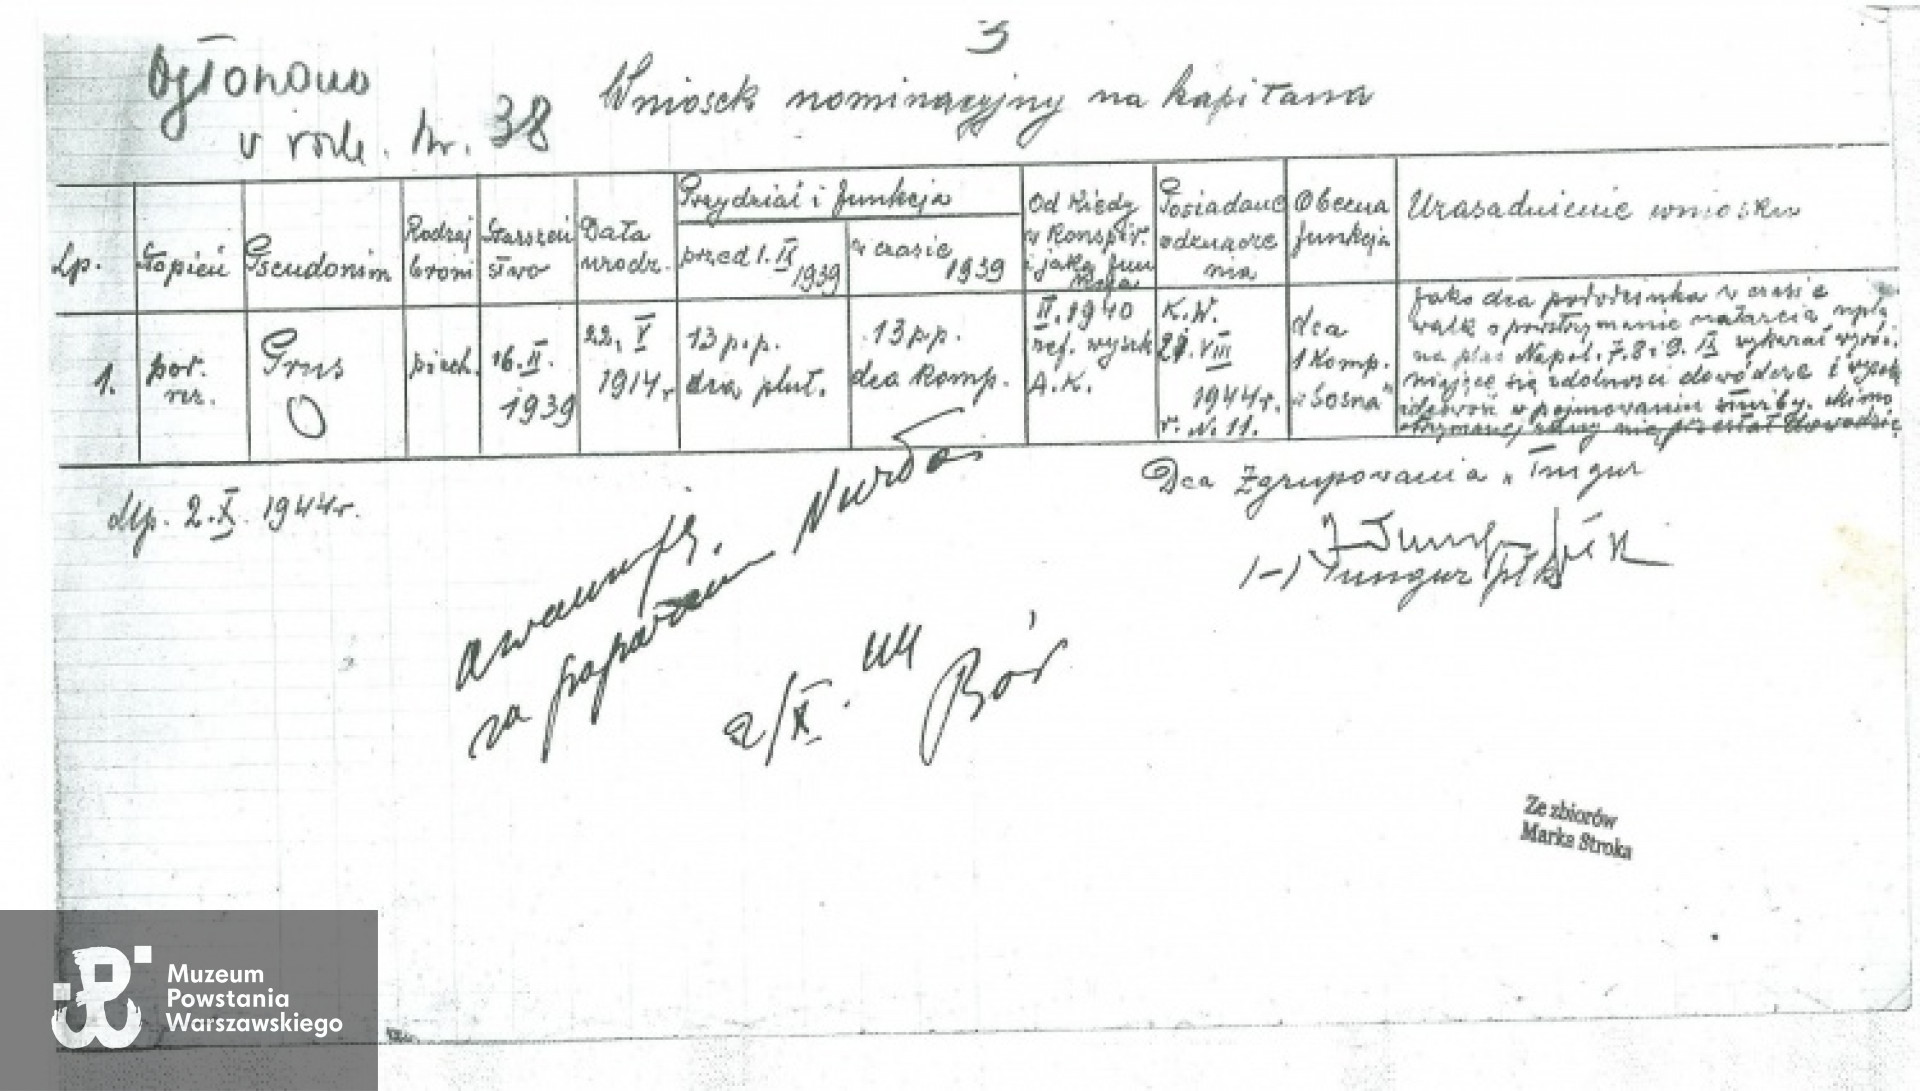 3
Ogłoszono
w rozk. Nr. 38
Wniosek nominacyjny na kapitana
Lp.
Stopień
Pseudonim
Rodzaj
broni
Starszeń
stwo
Data
urodz.
Przydział i funkcja
przed 1. IX
1939
w czasie
1939
Od kiedy
w Konspir.
i jaka fun
kcja
Posiadane
odznacze
nia
Obecna
funkcja
Uzasadnienie wniosku
1.
por.
rez.
Grus
O
piech.
16. II.
1939
22. V
1914r
13 p.p.
dca plut.
13 p.p.
dca komp.
II. 1940
ref. wyszk
A.K.
K.W.
VIII
1944r.
r. N. 11.
dca
1 komp.
"Sosna"
Jako dca pododcinka w czasie
walk o powstrzymanie natarcia npla
na plac Napol. 7. 8 i 9. IX wykazał wyróż.
niające się zdolności dowódcze i wysoką
ideowość w pojmowaniu służby. Mimo
otrzymanej rany nie przestał dowodzić
Mp. 2. X. 1944r.
Dca Zgrupowania "Tungur
(-) Tungur ppłk
awansuję.
za poparciem
2/X. 44
Bór
Ze zbiorów
Marka Stroka
Muzeum
Powstania
Warszawskiego